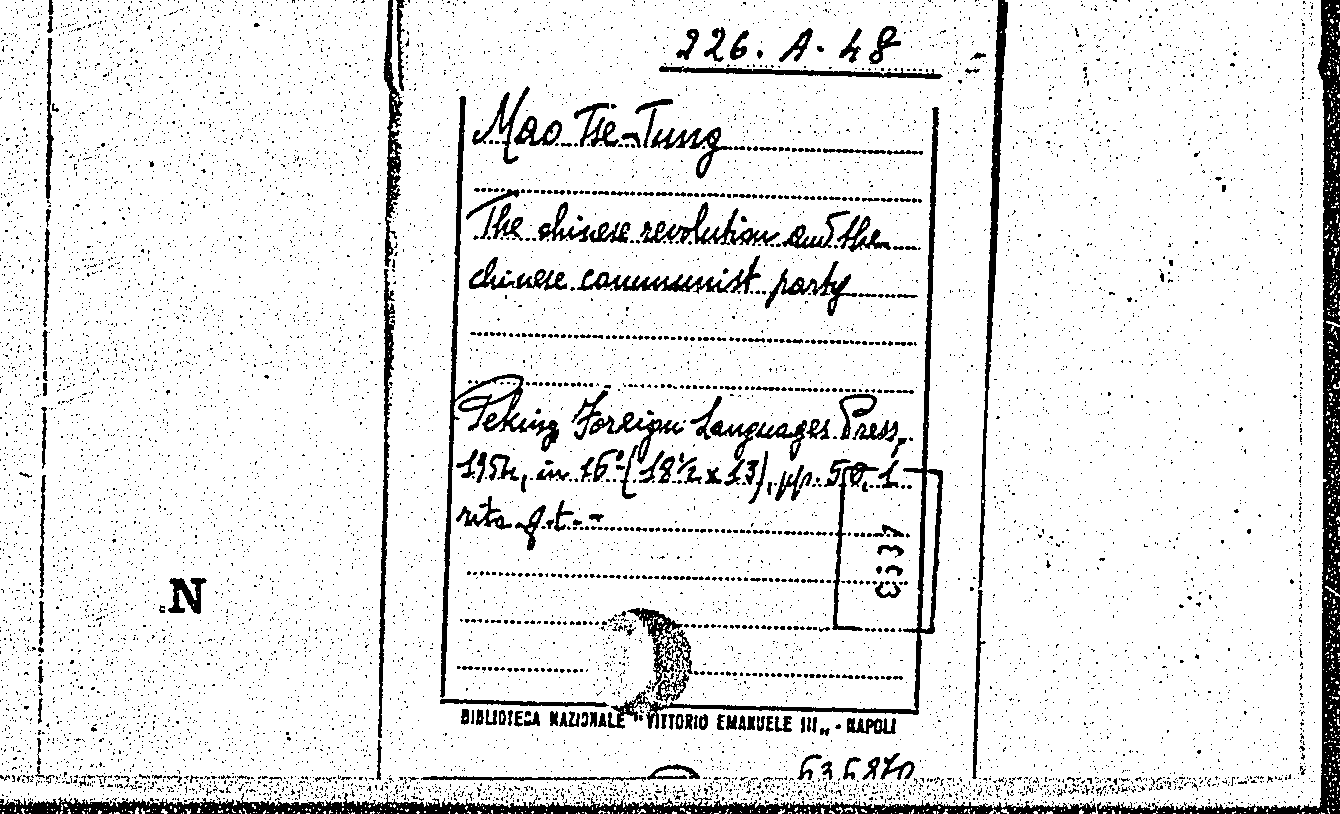 226. A. 48
Mao Tse-Tung
The chinese revolution and the
chinese communist party
Peking Foreign Languages Press,
1954, in 16° (18½ x 13), pp. 50, 1
N
BIBLIOTECA NAZIONALE "VITTORIO EMANUELE III„ - NAPOLI